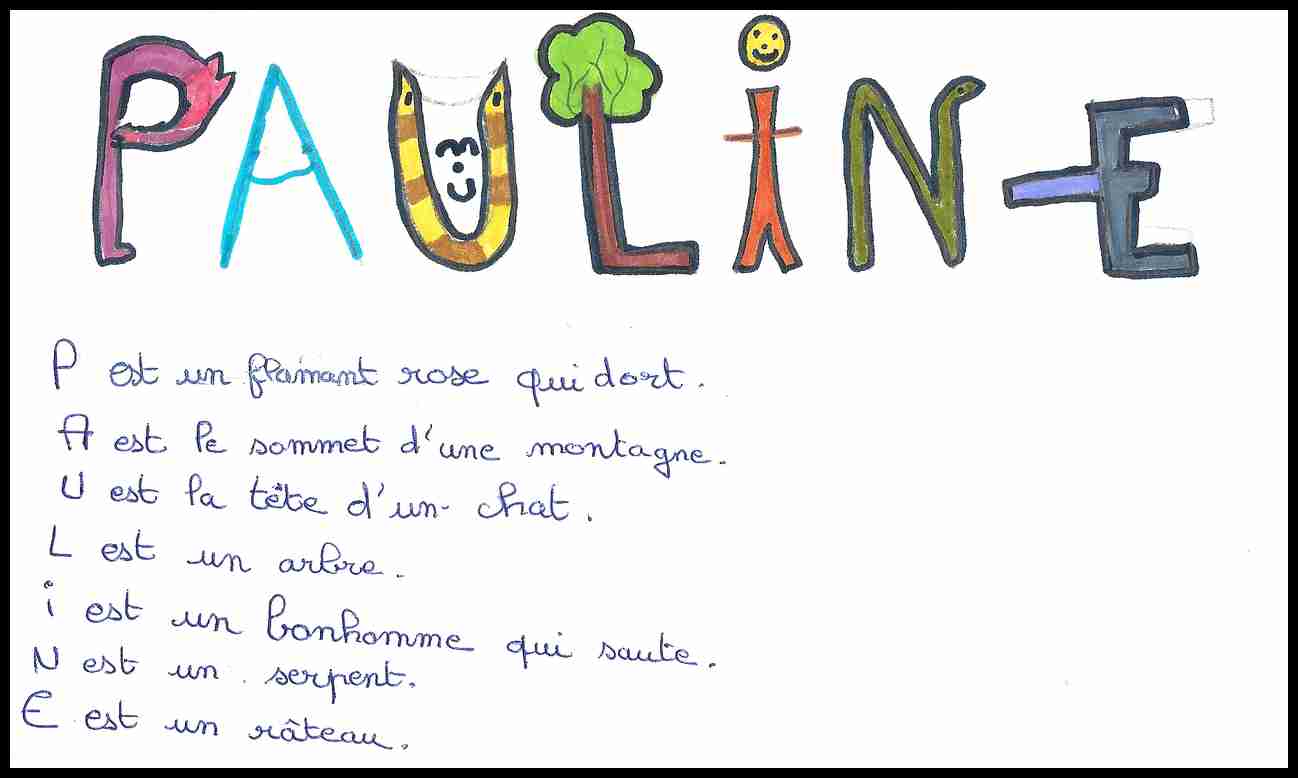 PAULiNE
P est un flamant rose qui dort.
A est le sommet d'une montagne.
U est la tête d'un chat.
L est un arbre.
i est un bonhomme qui saute.
N est un serpent.
E est un râteau.